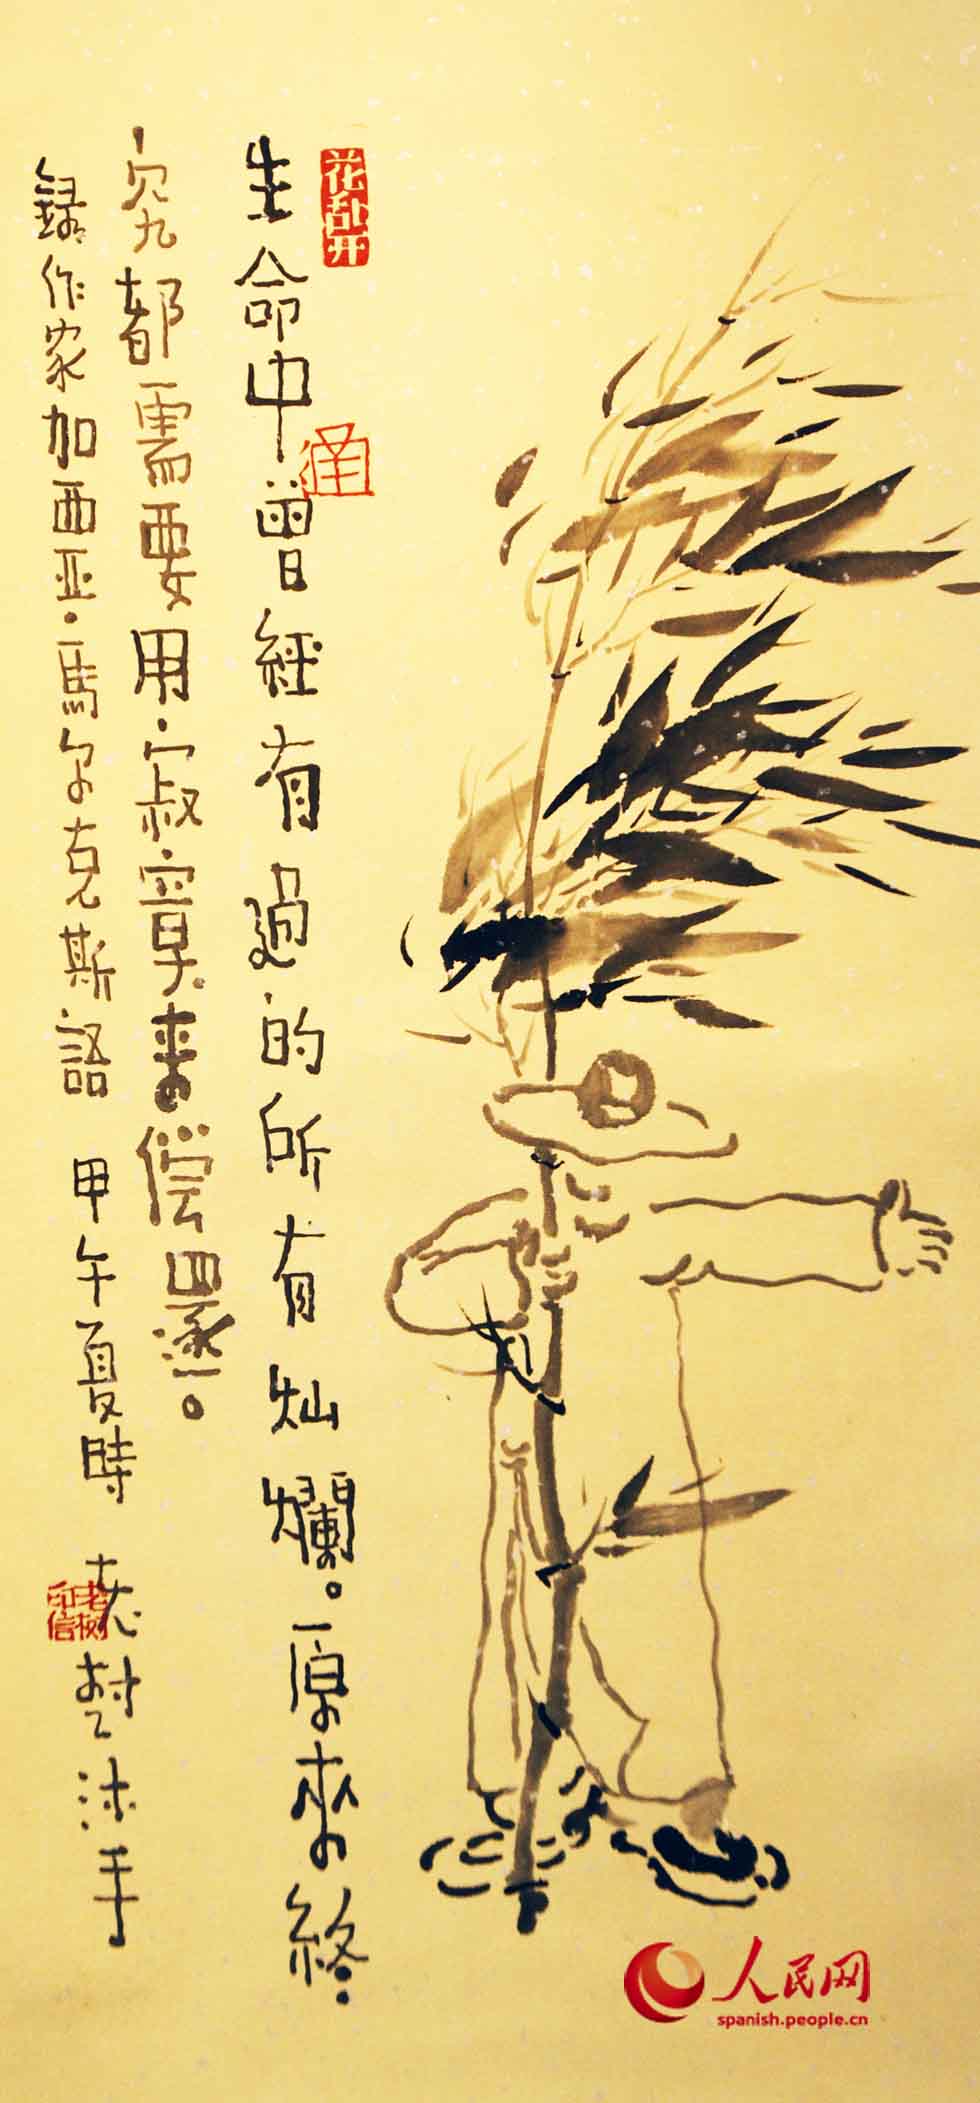 花乱开
生命中曾經有過的所有灿爛。原來終
究都需要用寂寞來偿還。
錄作家加西亚·馬尔克斯語 甲午夏時 老樹沐手
老树印信
人民网
spanish.people.cn